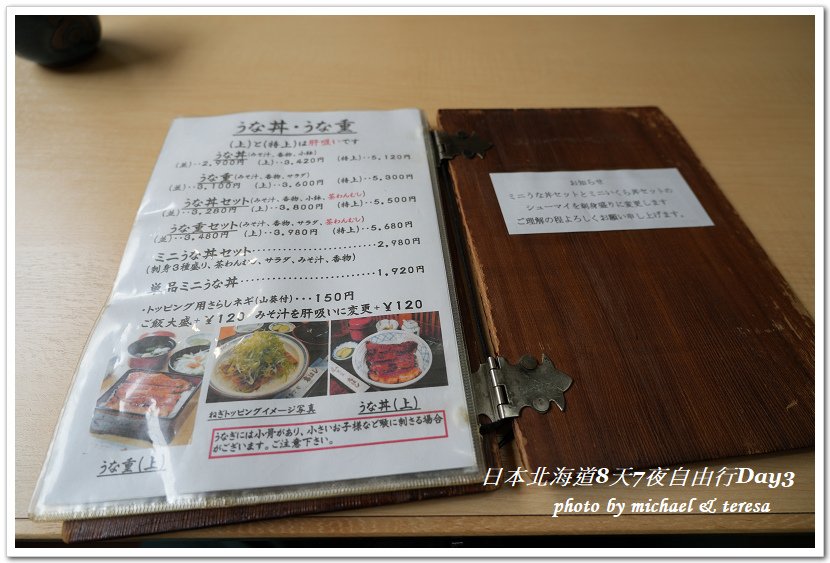 うな丼・うな重
(上)と(特上)は肝吸いです
うな丼(みそ汁、香物、小鉢)
(並)‥2,900円 (上)‥3,420円 (特上)‥5,120円
うな重(みそ汁、香物、サラダ)
(並)‥3,100円 (上)‥3,600円 (特上)‥5,300円
うな丼セット(みそ汁、香物、小鉢、茶わんむし)
(並)‥3,280円 (上)‥3,800円 (特上)‥5,500円
うな重セット(みそ汁、香物、サラダ、茶わんむし)
(並)‥3,480円 (上)‥3,980円 (特上)‥5,680円
ミニうな丼セット‥‥‥‥‥‥‥2,980円
(刺身3種盛り、茶わんむし、サラダ、みそ汁、香物)
単品ミニうな丼‥‥‥‥‥‥‥1,920円
・トッピング用さらしネギ(山葵付)・・・150円
ご飯大盛+¥120 みそ汁を肝吸いに変更+¥120
ねぎトッピングイメージ写真
うな丼(上)
うなぎには小骨があり、小さいお子様など喉に刺さる場合
がございます。ご注意下さい。
うな重(上)
お知らせ
ミニうな丼セットとミニいくら丼セットの
シューマイを刺身盛りに変更します
ご理解の程よろしくお願い申し上げます。
日本北海道8天7夜自由行Day3
photo by michael & teresa